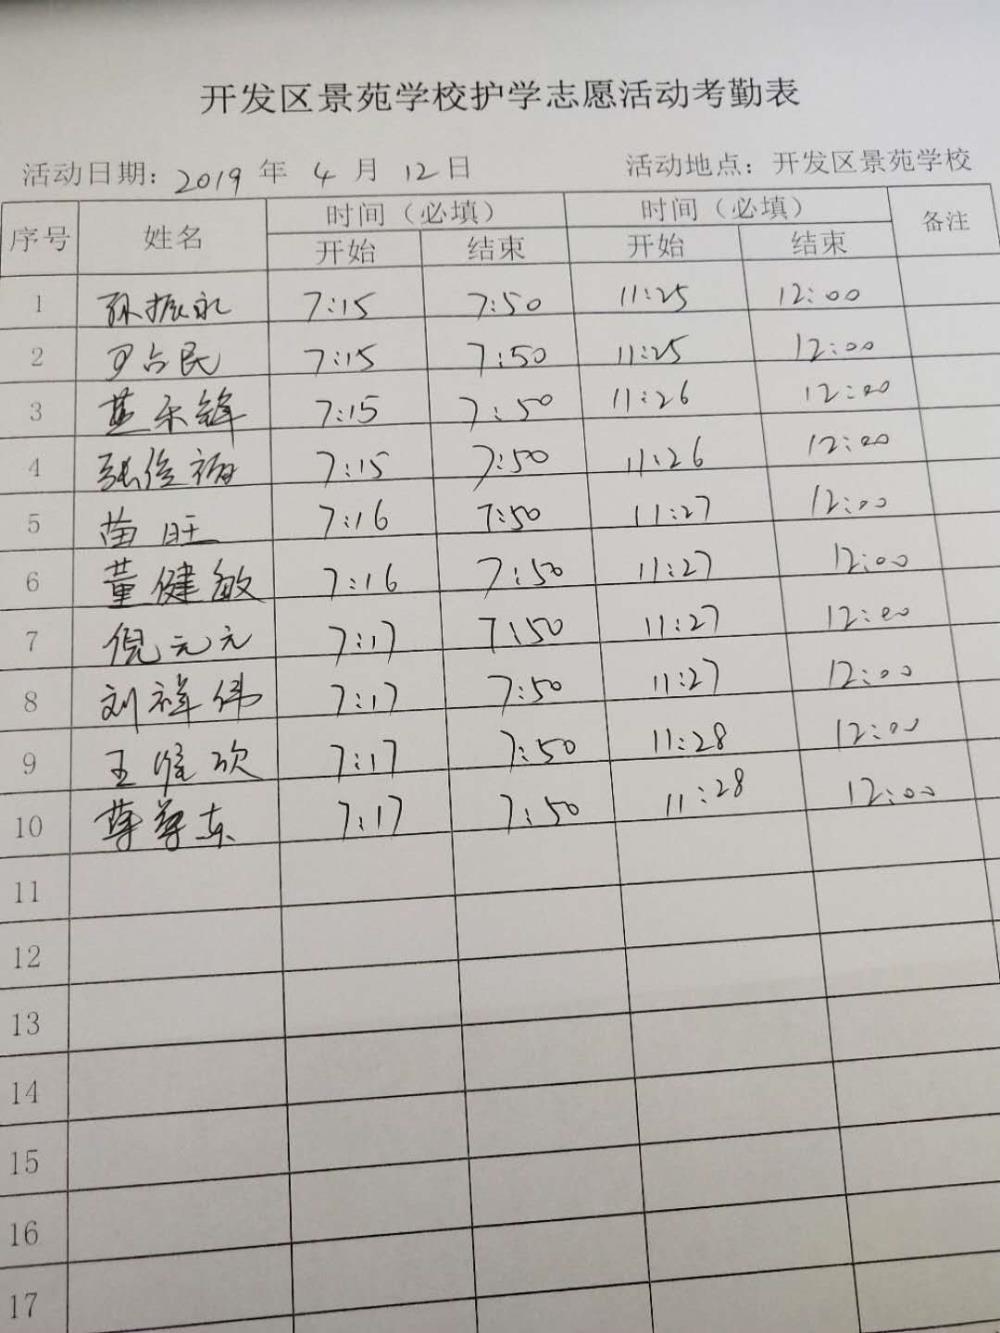 开发区景苑学校护学志愿活动考勤表
活动日期: 2019 年 4 月 12 日 活动地点: 开发区景苑学校
序号 姓名 时间（必填） 时间（必填） 备注
开始 结束 开始 结束
1 孙振永 7:15 7:50 11:25 12:00
2 尹占民 7:15 7:50 11:25 12:00
3 7:15 7:50 11:26 12:00
4 张俊 7:15 7:50 11:26 12:00
5 苗旺 7:16 7:50 11:27 12:00
6 董健敏 7:16 7:50 11:27 12:00
7 倪元元 7:17 7:50 11:27 12:00
8 刘祥伟 7:17 7:50 11:27 12:00
9 王维欣 7:17 7:50 11:28 12:00
10 7:17 7:50 11:28 12:00
11
12
13
14
15
16
17